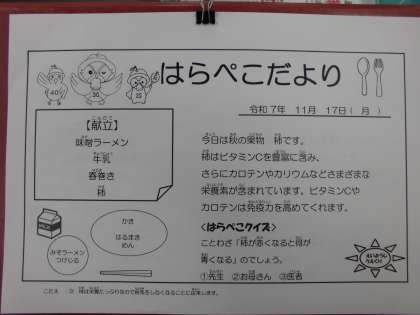 はらぺこだより
40 30 25
令和7年 11月 17日(月)
【献立】
味噌ラーメン
牛乳
春巻き
柿
今日は秋の果物 柿です。
柿はビタミンCを豊富に含み、
さらにカロテンやカリウムなどさまざまな
栄養素が含まれています。ビタミンCや
カロテンは免疫力を高めてくれます。
かき
はるまき
めん
みそラーメン
つけじる
<はらぺこクイズ>
ことわざ「柿が赤くなると何が
青くなる」のでしょう。
①先生 ②お母さん ③医者
えいようし
こたえ:③